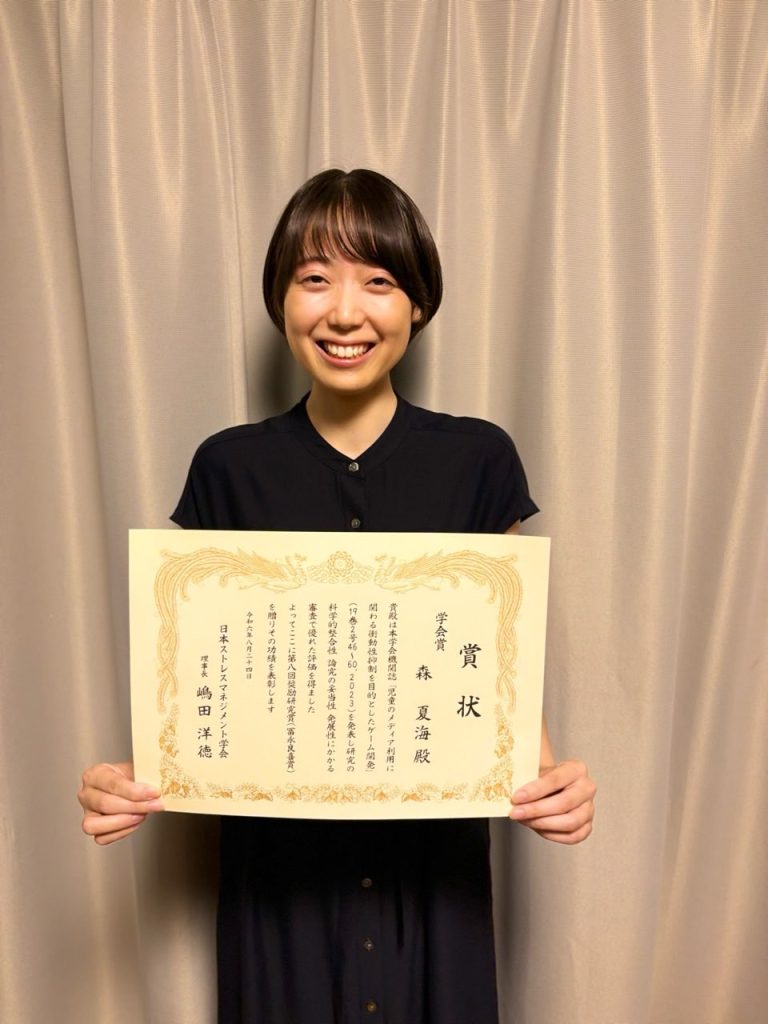 賞状
学会賞
森 夏海殿
貴殿は本学会機関誌「児童のメディア利用に
関わる衝動性抑制を目的としたゲーム開発」
(19巻2号46~60，2023)を発表し研究の
科学的整合性 論究の妥当性 発展性にかかる
審査で優れた評価を得ました
よってここに第八回奨励研究賞(冨永良喜賞)
を贈りその功績を表彰します
令和六年八月二十四日
日本ストレスマネジメント学会
理事長 嶋田 洋徳